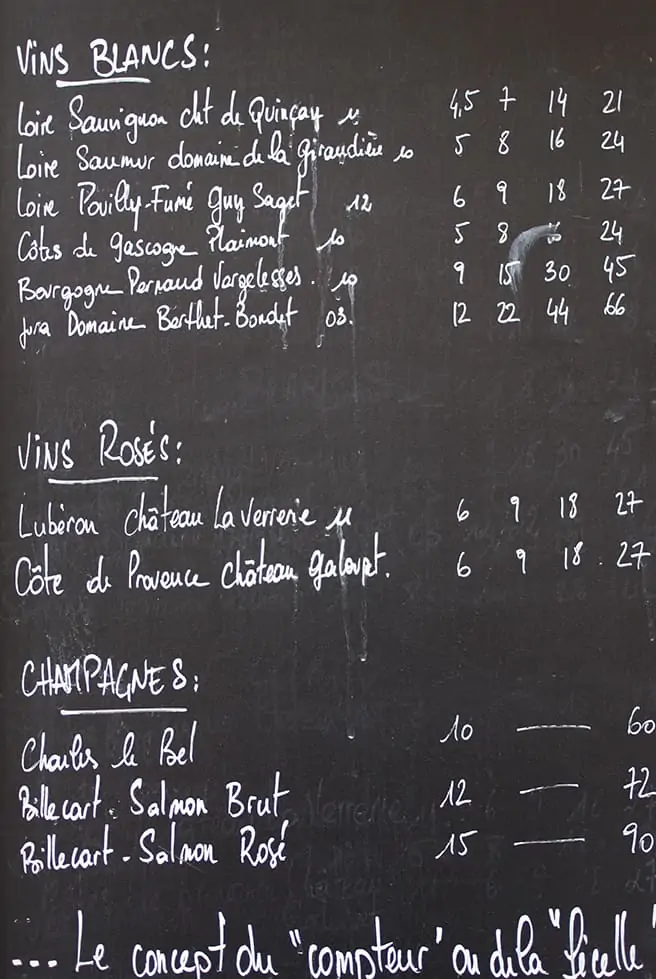 VINS BLANCS:
Loire Sauvignon cht de Quinçay 11 4,5 7 14 21
Loire Saumur domaine de la Giraudière 10 5 8 16 24
Loire Pouilly-Fumé Guy Saget 12 6 9 18 27
Côtes de gascogne Plaimont 10 5 8 24
Bourgogne Pernand Vergelesses. 10 9 15 30 45
Jura Domaine Berthet-Bondet 03. 12 22 44 66
VINS ROSÉS:
Lubéron château La verrerie 11 6 9 18 27
Côte de Provence château galoupet. 6 9 18. 27
CHAMPAGNES:
Charles le Bel 10 — 60
Billecart-Salmon Brut 12 — 72
Billecart-Salmon Rosé 15 — 90
... Le concept du "compteur" ou de la "ficelle"